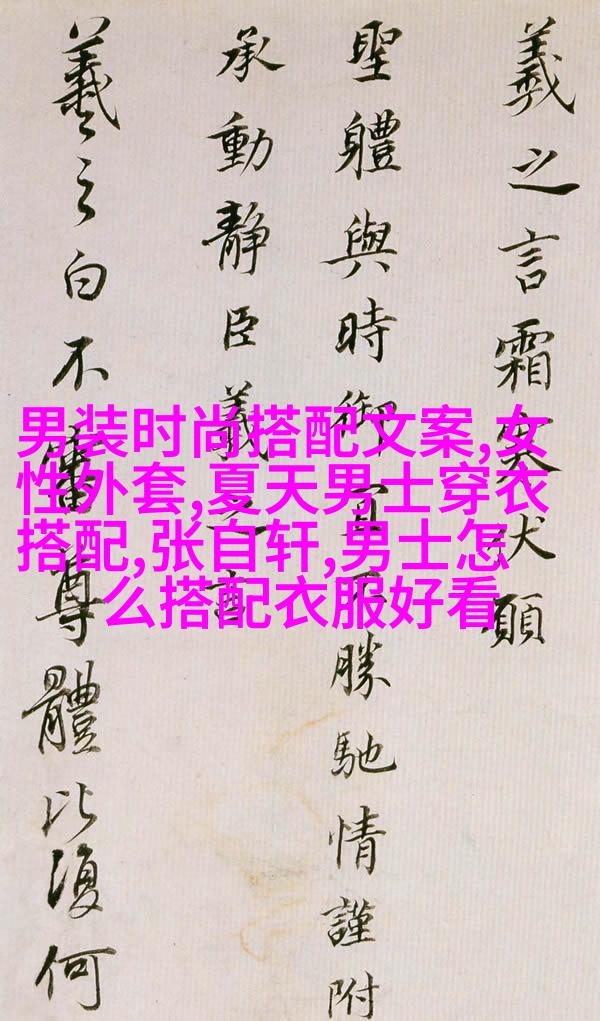 羲之言霜寒伏願
聖體與時御宜不勝馳情謹附
承動靜臣羲之言
羲之白不審尊體比復何
男装时尚搭配文案,女
性外套,夏天男士穿衣
搭配,张自轩,男士怎
么搭配衣服好看